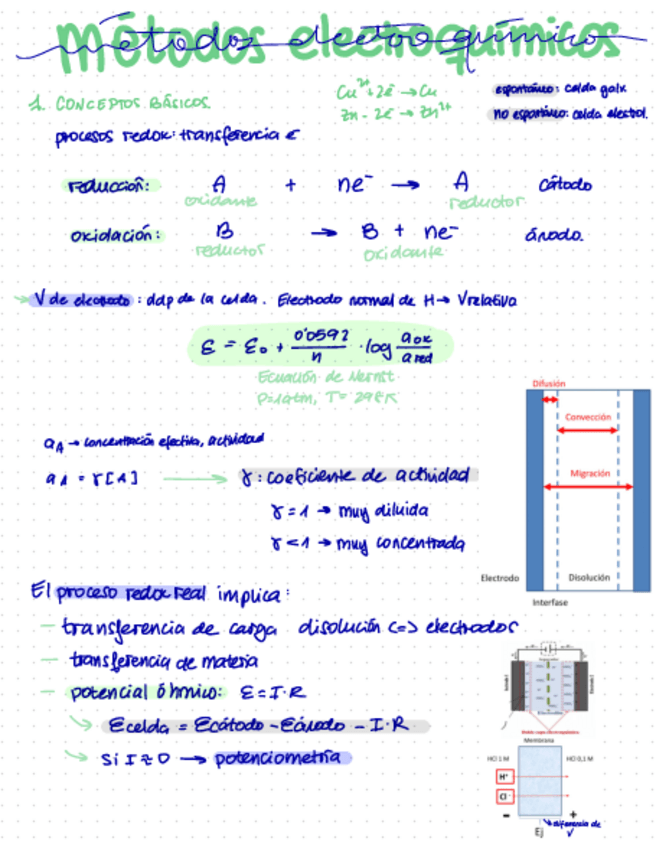 métodos electroquímicos
1. CONCEPTOS BÁSICOS.
Cu²⁺+2ē → Cu
Zn - 2ē → Zn²⁺
espontáneo: celda galv
no espontáneo: celda electrol.
procesos redox: transferencia e⁻
reducción: A + ne⁻ → A cátodo
oxidante reductor
oxidación: B → B + ne⁻ ánodo.
reductor oxidante
V de electrodo: ddp de la celda. Electrodo normal de H → Vrelativo
ε = ε₀ + 0'0592/n · log aox/ared
Ecuación de Nernst
P=1atm, T= 298K
aA → concentración efectiva, actividad
aA = γ[A] → γ: coeficiente de actividad
γ = 1 → muy diluida
γ < 1 → muy concentrada
Difusión
Convección
Migración
Electrodo
Disolución
Interfase
El proceso redox real implica:
- transferencia de carga disolución <=> electrodos
- transferencia de materia
- potencial óhmico: ε = I·R
Ecelda = Ecátodo - Eánodo - I·R
Si I ≈ 0 → potenciometría
Membrana
HCl 1 M
HCl 0,1 M
H⁺
Cl⁻
- +
Ej
diferencia de V